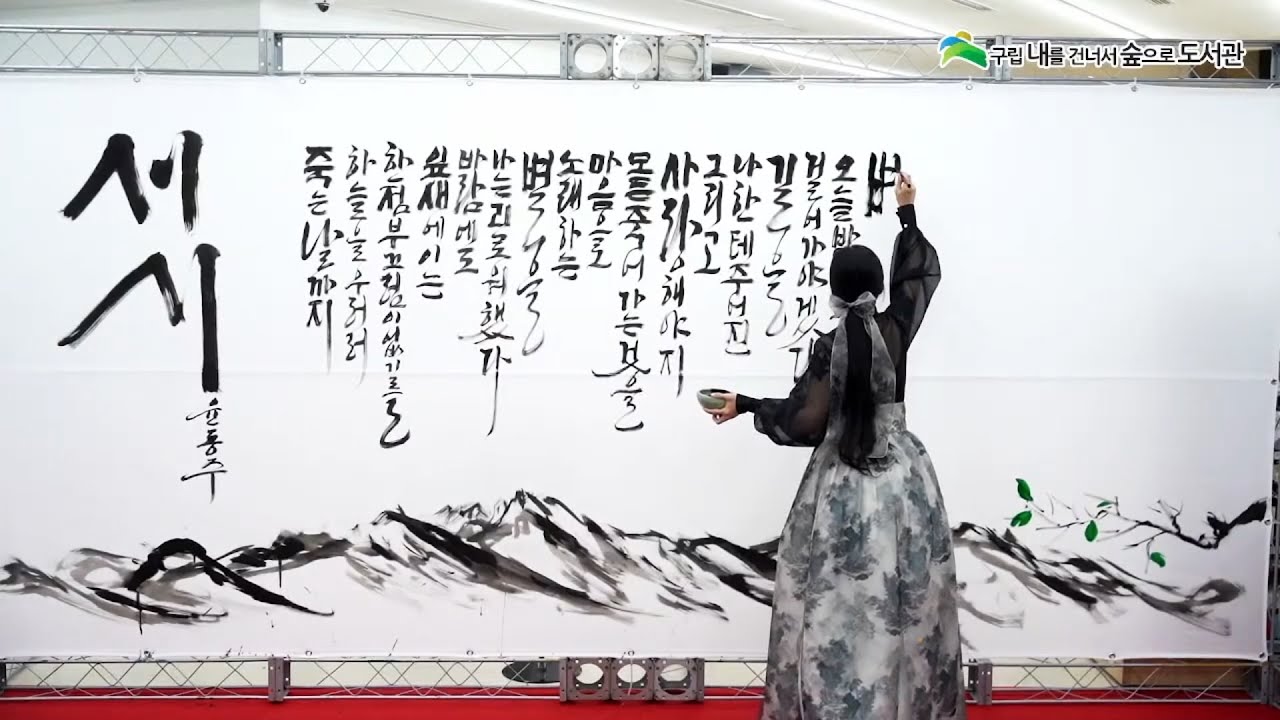 구립 내를 건너서 숲으로 도서관
서시
윤동주
죽는날까지
하늘을우러러
한점부끄럼이없기를
잎새에이는
바람에도
나는괴로워했다
별을
노래하는
마음으로
모든죽어가는것을
사랑해야지
그리고
나한테주어진
길을
걸어가야겠다
오늘밤